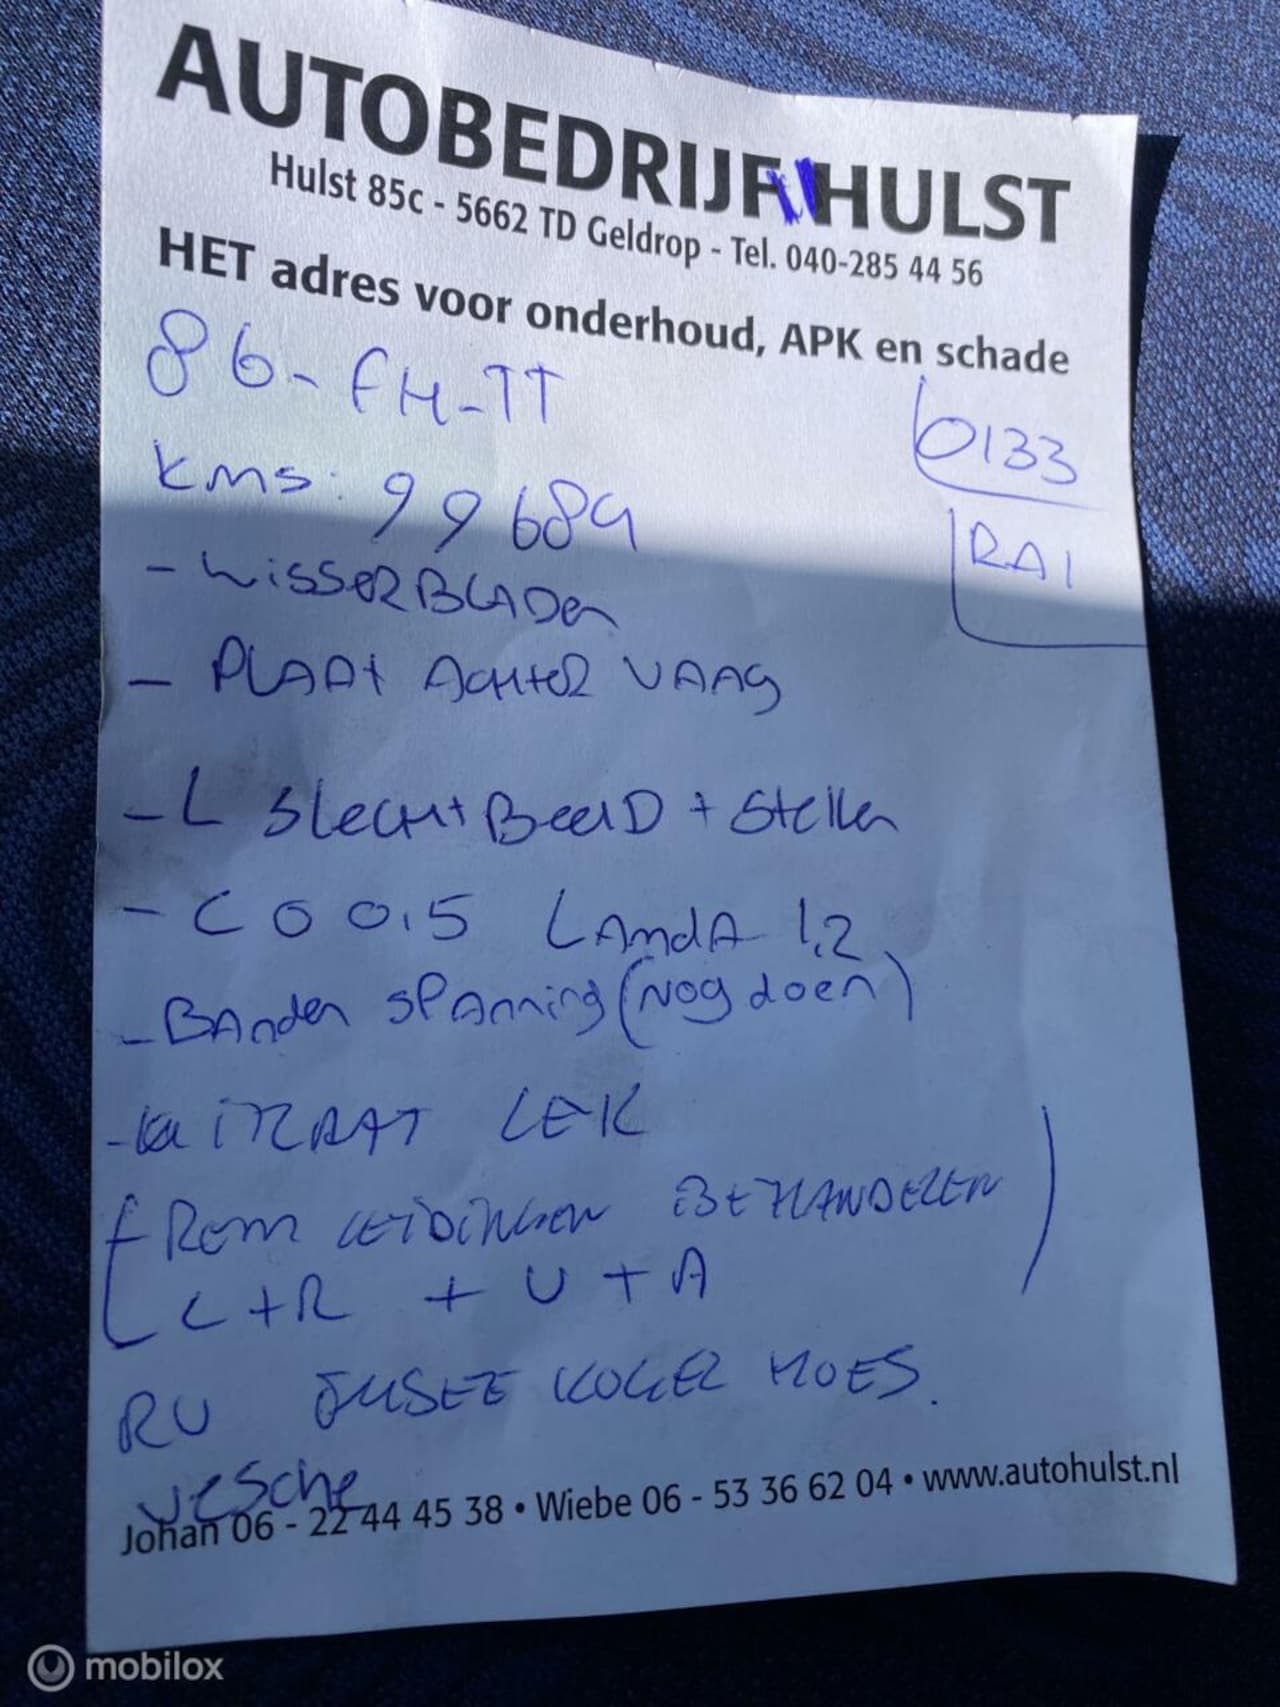 AUTOBEDRIJF HULST
Hulst 85c - 5662 TD Geldrop - Tel. 040-285 44 56
HET adres voor onderhoud, APK en schade
86-FH-TT
0133
kms: 99689
RAI
- WISSERBLADEn
- PLAAt ACHtER VAAg
- L SlecHt BeelD + Stellen
- CO 0,5 LAmdA 1,2
- BAnden SPAnning (Nog doen)
LEK
REM LEIDINGEN BEHANDELEN
L+R + V + A
RV FUSEE KOGEL HOES.
Johan 06 - 22 44 45 38 • Wiebe 06 - 53 36 62 04 • www.autohulst.nl
mobilox